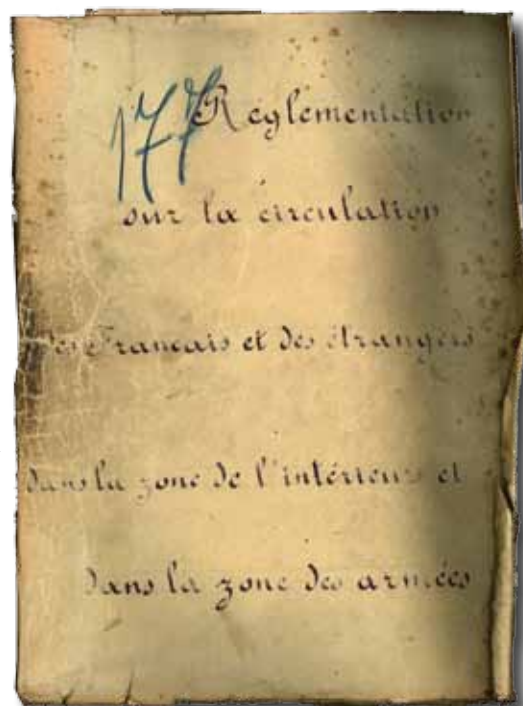 177
Réglementation
sur la circulation
des Français et des étrangers
dans la zone de l'intérieur et
dans la zone des armées